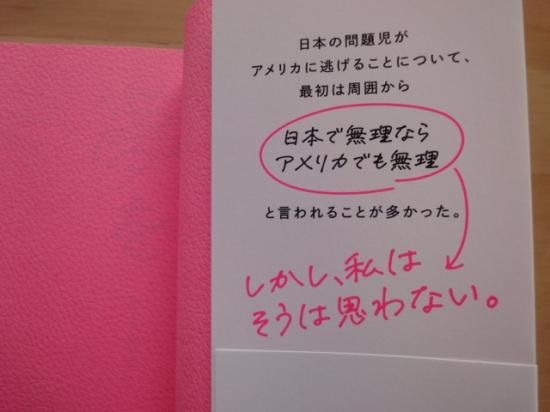 日本の問題児が
アメリカに逃げることについて、
最初は周囲から
日本で無理なら
アメリカでも無理
と言われることが多かった。
しかし、私は
そうは思わない。